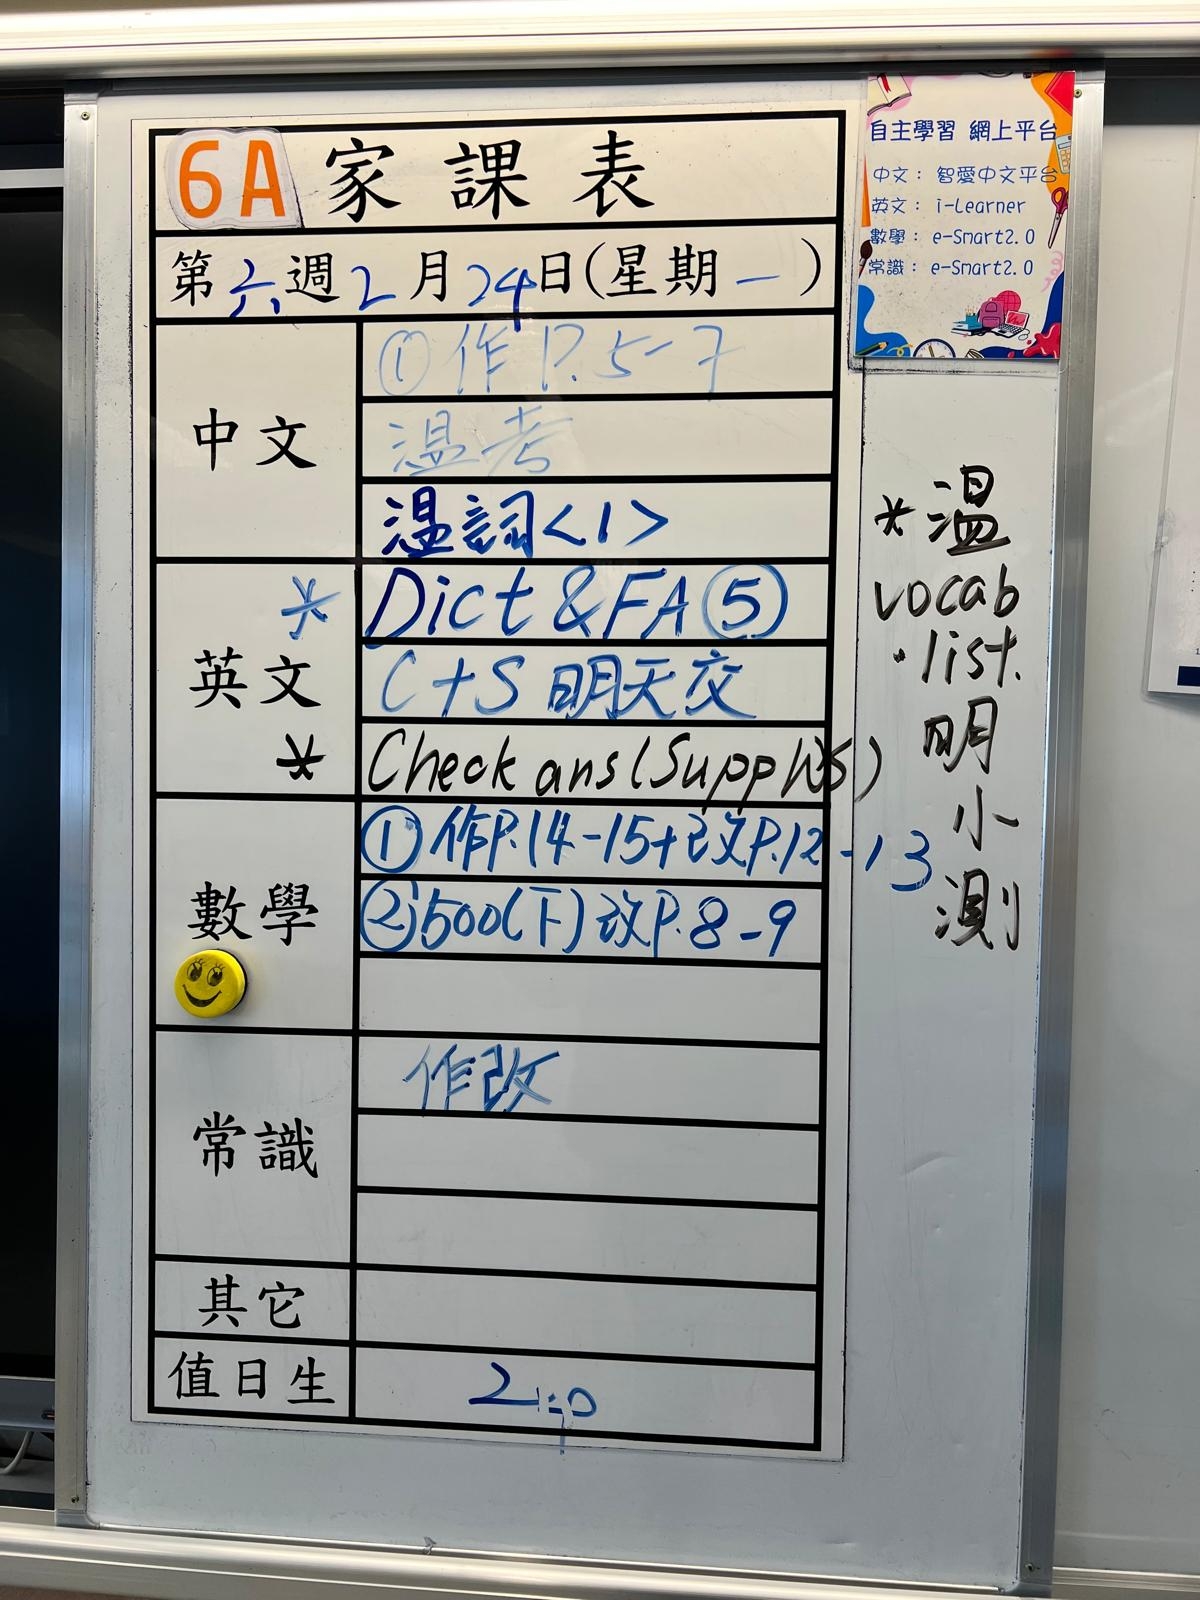 6A 家課表
第六週2月24日(星期一)
中文
①作P.5-7
溫考
溫詞<1>
英文
* Dict & FA⑤
C+S 明天交
* Check ans(Supp WS)
數學
①作P.14-15+改P.12-13
②500(下)改P.8-9
常識
作改
其它
值日生
自主學習 網上平台
中文： 智愛中文平台
英文： i-Learner
數學： e-Smart2.0
常識： e-Smart2.0
*溫
vocab
list.
明
小
測